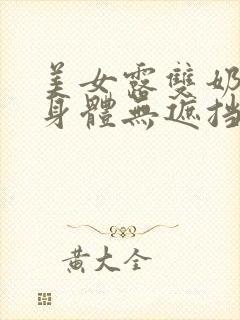 美女露雙奶
身體無遮挡
黄大全